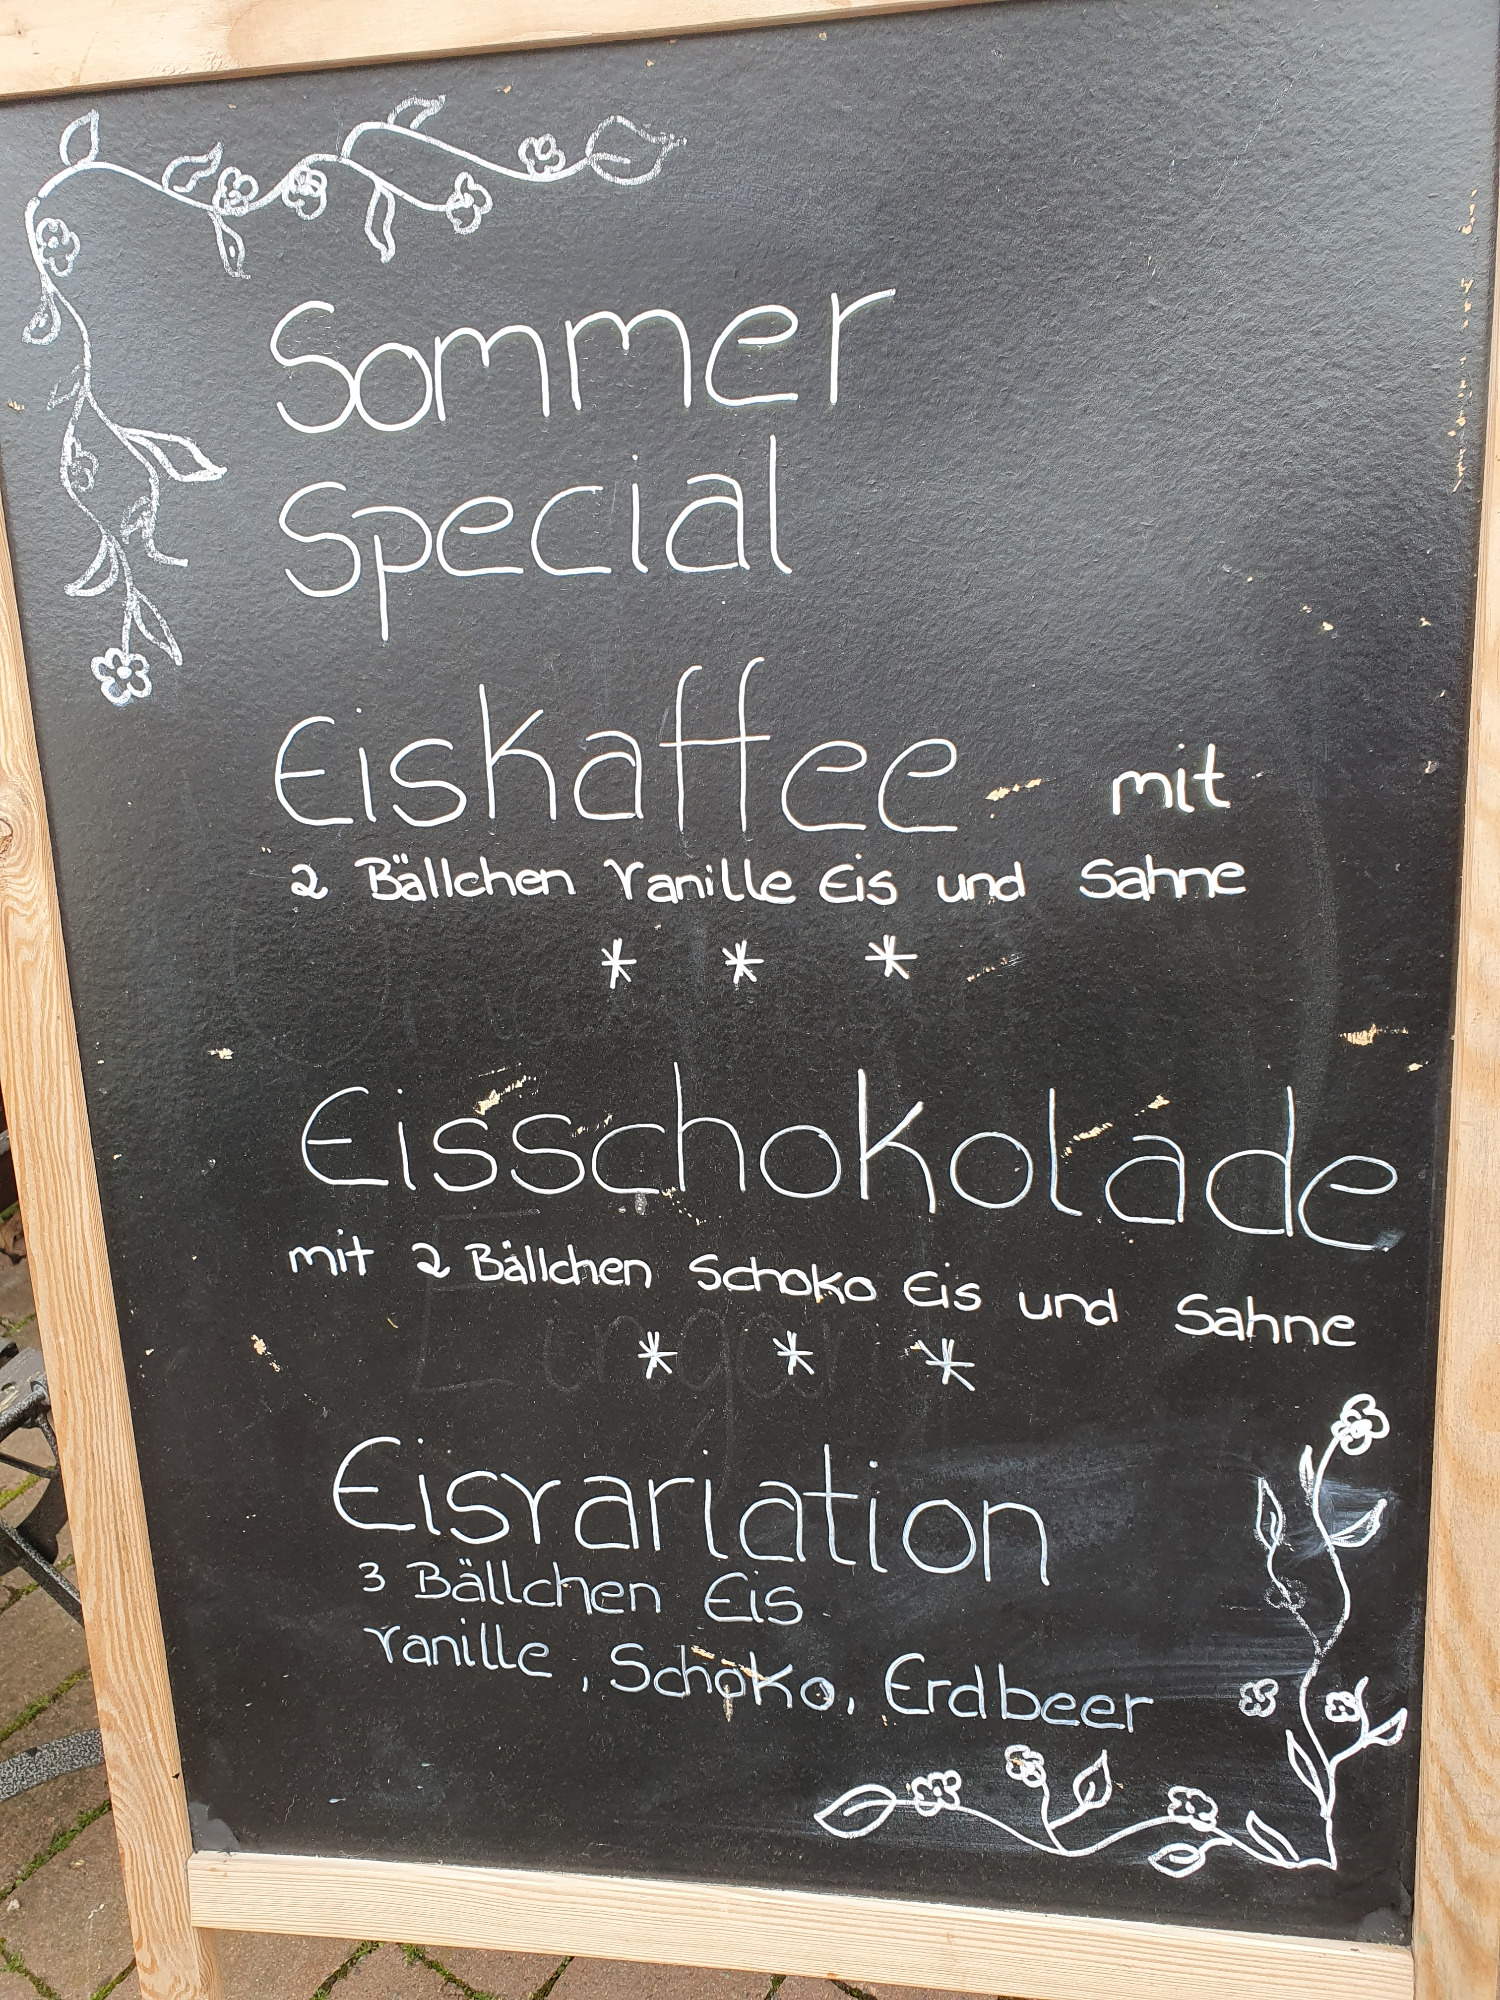 Sommer
Special
Eiskaffee mit
2 Bällchen Vanille Eis und Sahne
* * *
Eisschokolade
mit 2 Bällchen Schoko Eis und Sahne
* * *
Eisvariation
3 Bällchen Eis
Vanille, Schoko, Erdbeer